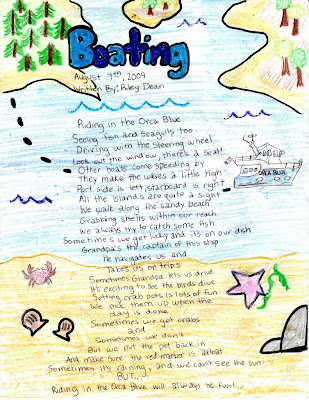 Boating
August 7th, 2009
Written By: Riley Dean
Riding in the Orca Blue
Seeing fish and Seagulls too
Driving with the Steering wheel
Look out the window, there's a seal!
Other boats come speeding by
They make the waves a little high
Port side is left, starboard is right
All the Islands are quite a sight
We walk along the sandy beach
Grabbing shells within our reach
We always try to catch some fish
Sometimes we get lucky and its on our dish
Grandpa's the captain of this ship
He navigates us and
Takes us on trips
Sometimes Grandpa lets us drive
It's exciting to see the birds dive
Setting crab pots is lots of fun
We pick them up when the
day is done
Sometimes we get crabs
and
Sometimes we don't
But we put the pot back in
And make sure the red marker is afloat
Sometimes its raining, and we can't see the sun
BUT...
Riding in the Orca Blue will always be fun!
ORCA BLUE